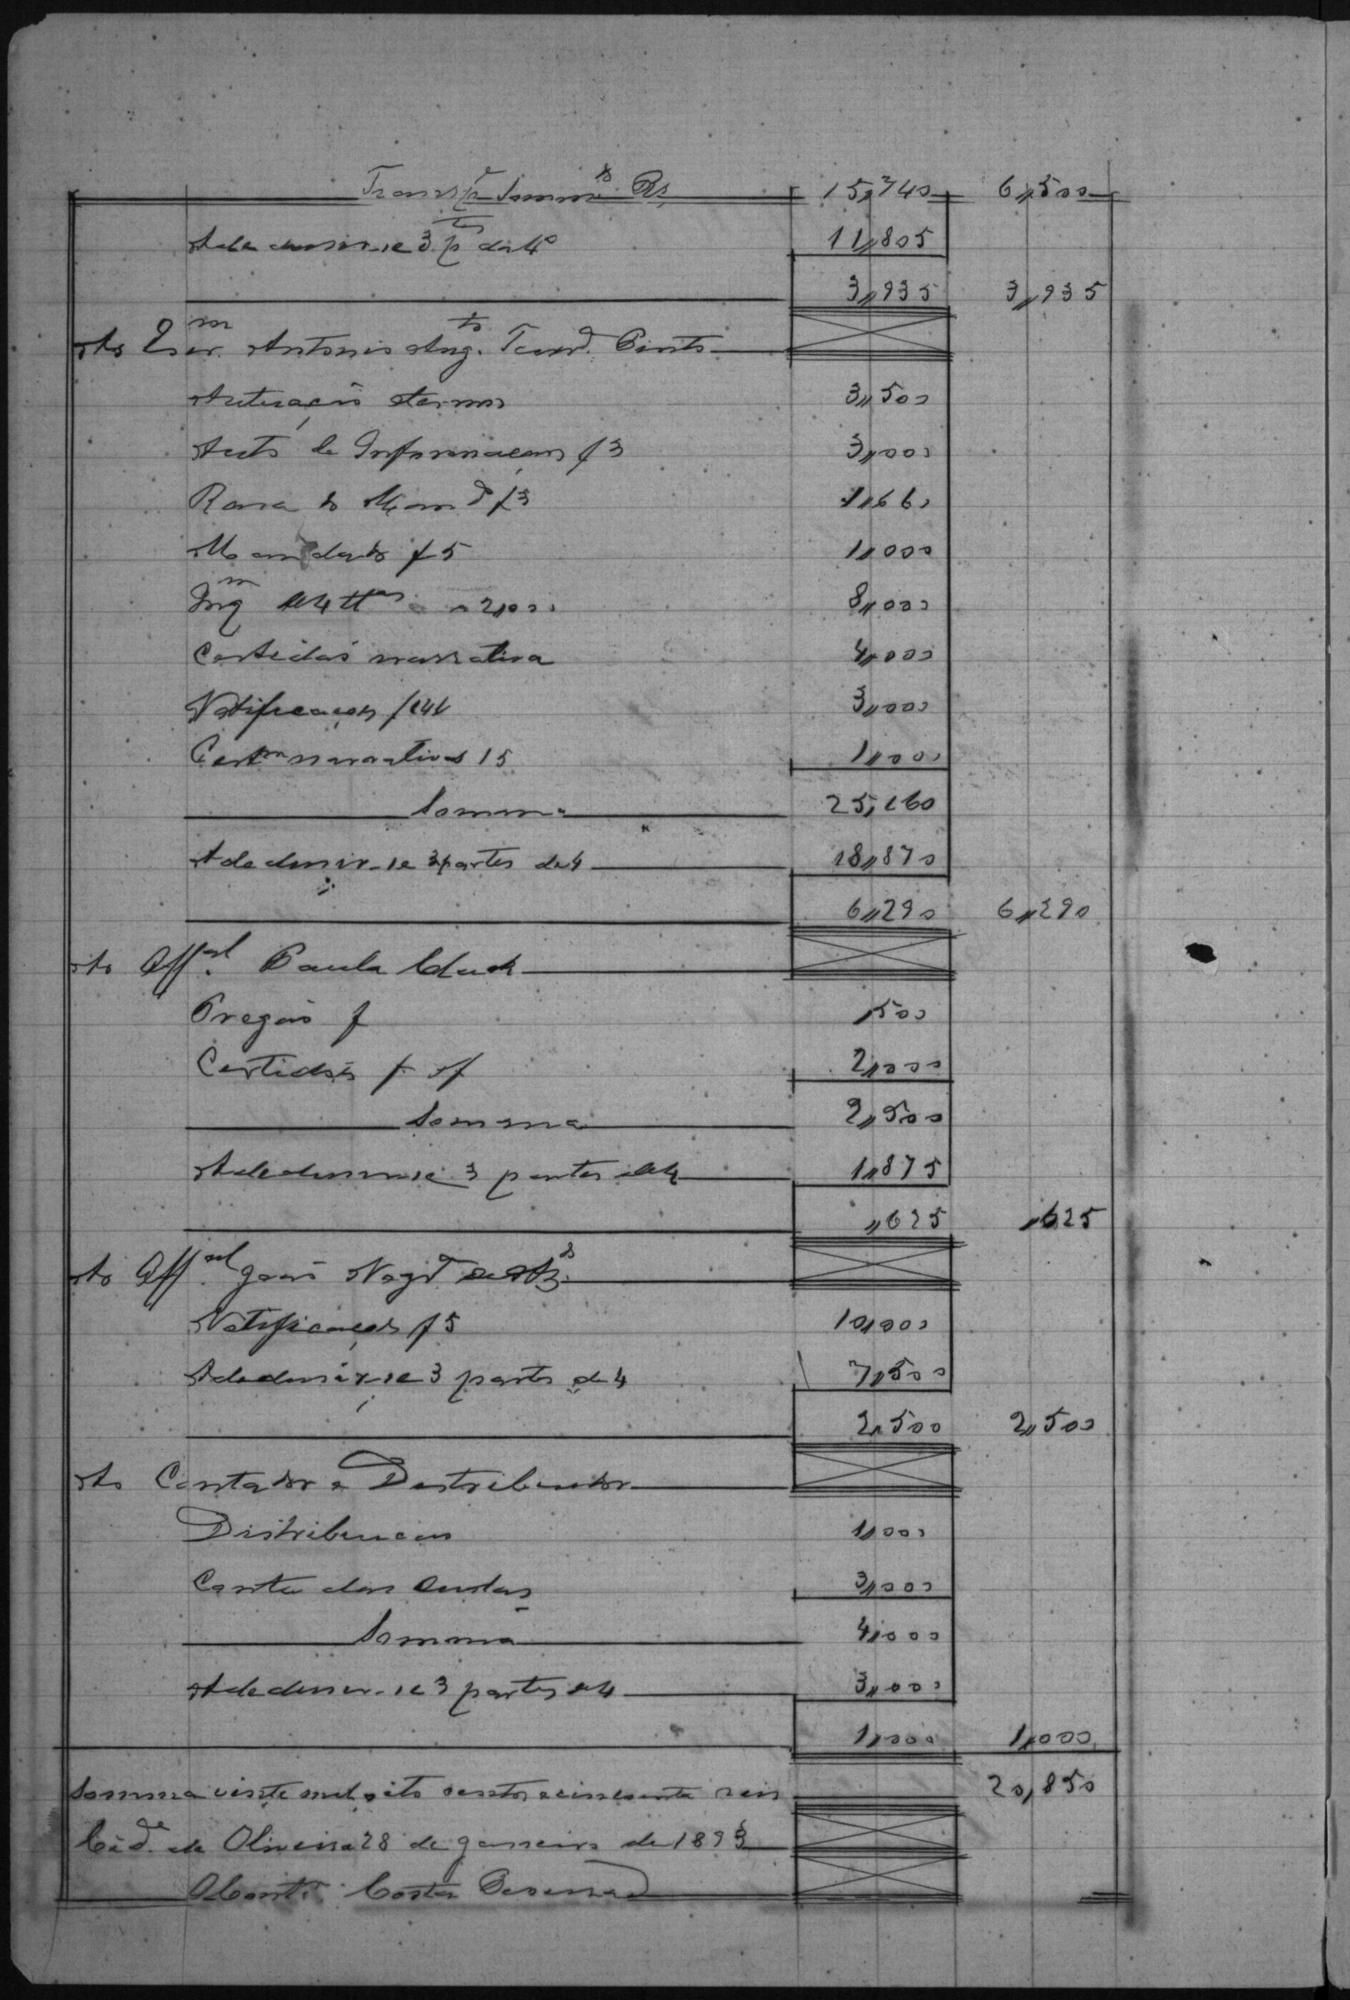 Transpe Somma Rs 15,740 6,,500
A deducir-se 3 ptes de 4 11,,805
3,,935 3,,935
Ao Escrm Antonio Aug.to Pinto
Autuação e termos 3,,500
Auto de Informacam f 3 3,,000
Rasa do Mando f 3 1,,660
Mandado f 5 1,,000
Inqm de 4 ttas a 2,,000 8,,000
Certidão narrativa 4,,000
Notificacoes f 3,,000
Certm narrativas 15 1,,000
Somma 25,160
A deducir-se 3 partes de 4 18,,870
6,,290 6,,290
Ao Offal Paula
Pregão f ,,500
Certidões f 2,,000
Somma 2,,500
A deducir-se 3 partes de 4 1,,875
,,625 ,,625
Ao Offal João
Notificacoes f 5 10,,000
A deducir-se 3 partes de 4 7,,500
2,,500 2,,500
Ao Contador e Destribuidor
Distribuicam 1,,000
Conta das Custas 3,,000
Somma 4,,000
A deducir-se 3 partes de 4 3,,000
1,,000 1,,000
Somma vinte mil oito centos e cincoenta reis 20,,850
Cid.de de Oliveira 28 de janeiro de 1893
O Contr Costa